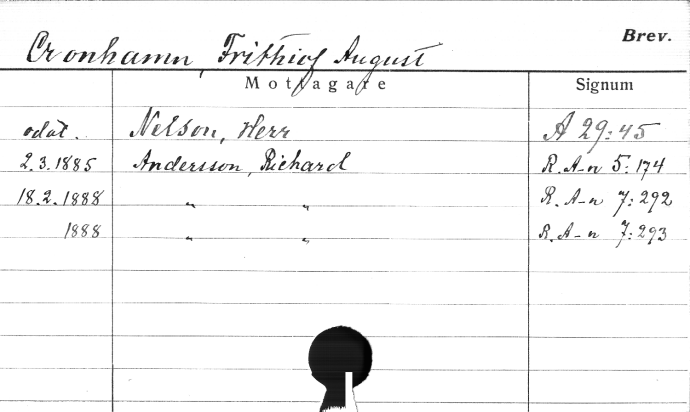 Brev.
Cronhamn, Frithiof August
Mottagare Signum
odat. Nelson, Herr A 29:45
2.3.1885 Andersson, Richard R. A-n 5:174
18.2.1888 " " R. A-n 7:292
1888 " " R. A-n 7:293